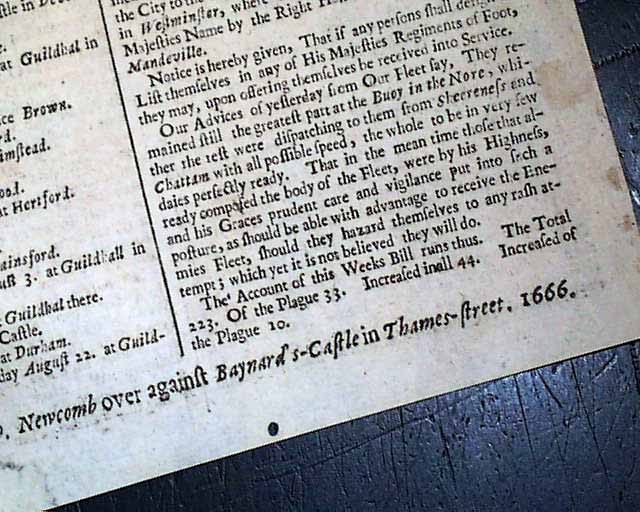 at Guildhal in
ice Brown.
rd.
imstead.
ood.
at Hertford.
ainsford.
ust 3. at Guildhall in
Guildhal there.
Castle.
at Durham.
day August 22. at Guild-
the City to the
in Westminster, where
Majesties Name by the Right
Mandeville.
Notice is hereby given, That if any persons shall
List themselves in any of His Majesties Regiments of Foot,
they may, upon offering themselves be received into Service.
Our Advices of yesterday from Our Fleet say, They re-
mained still the greatest part at the Buoy in the Nore, whi-
ther the rest were dispatching to them from Sheereness and
Chattam with all possible speed, the whole to be in very few
daies perfectly ready. That in the mean time those that al-
ready composed the body of the Fleet, were by his Highness,
and his Graces prudent care and vigilance put into such a
posture, as should be able with advantage to receive the Ene-
mies Fleet, should they hazard themselves to any rash at-
tempt; which yet it is not believed they will do.
The Account of this Weeks Bill runs thus. The Total
223. Of the Plague 33. Increased in all 44. Increased of
the Plague 10.
Newcomb over against Baynard's-Castle in Thames-street. 1666.